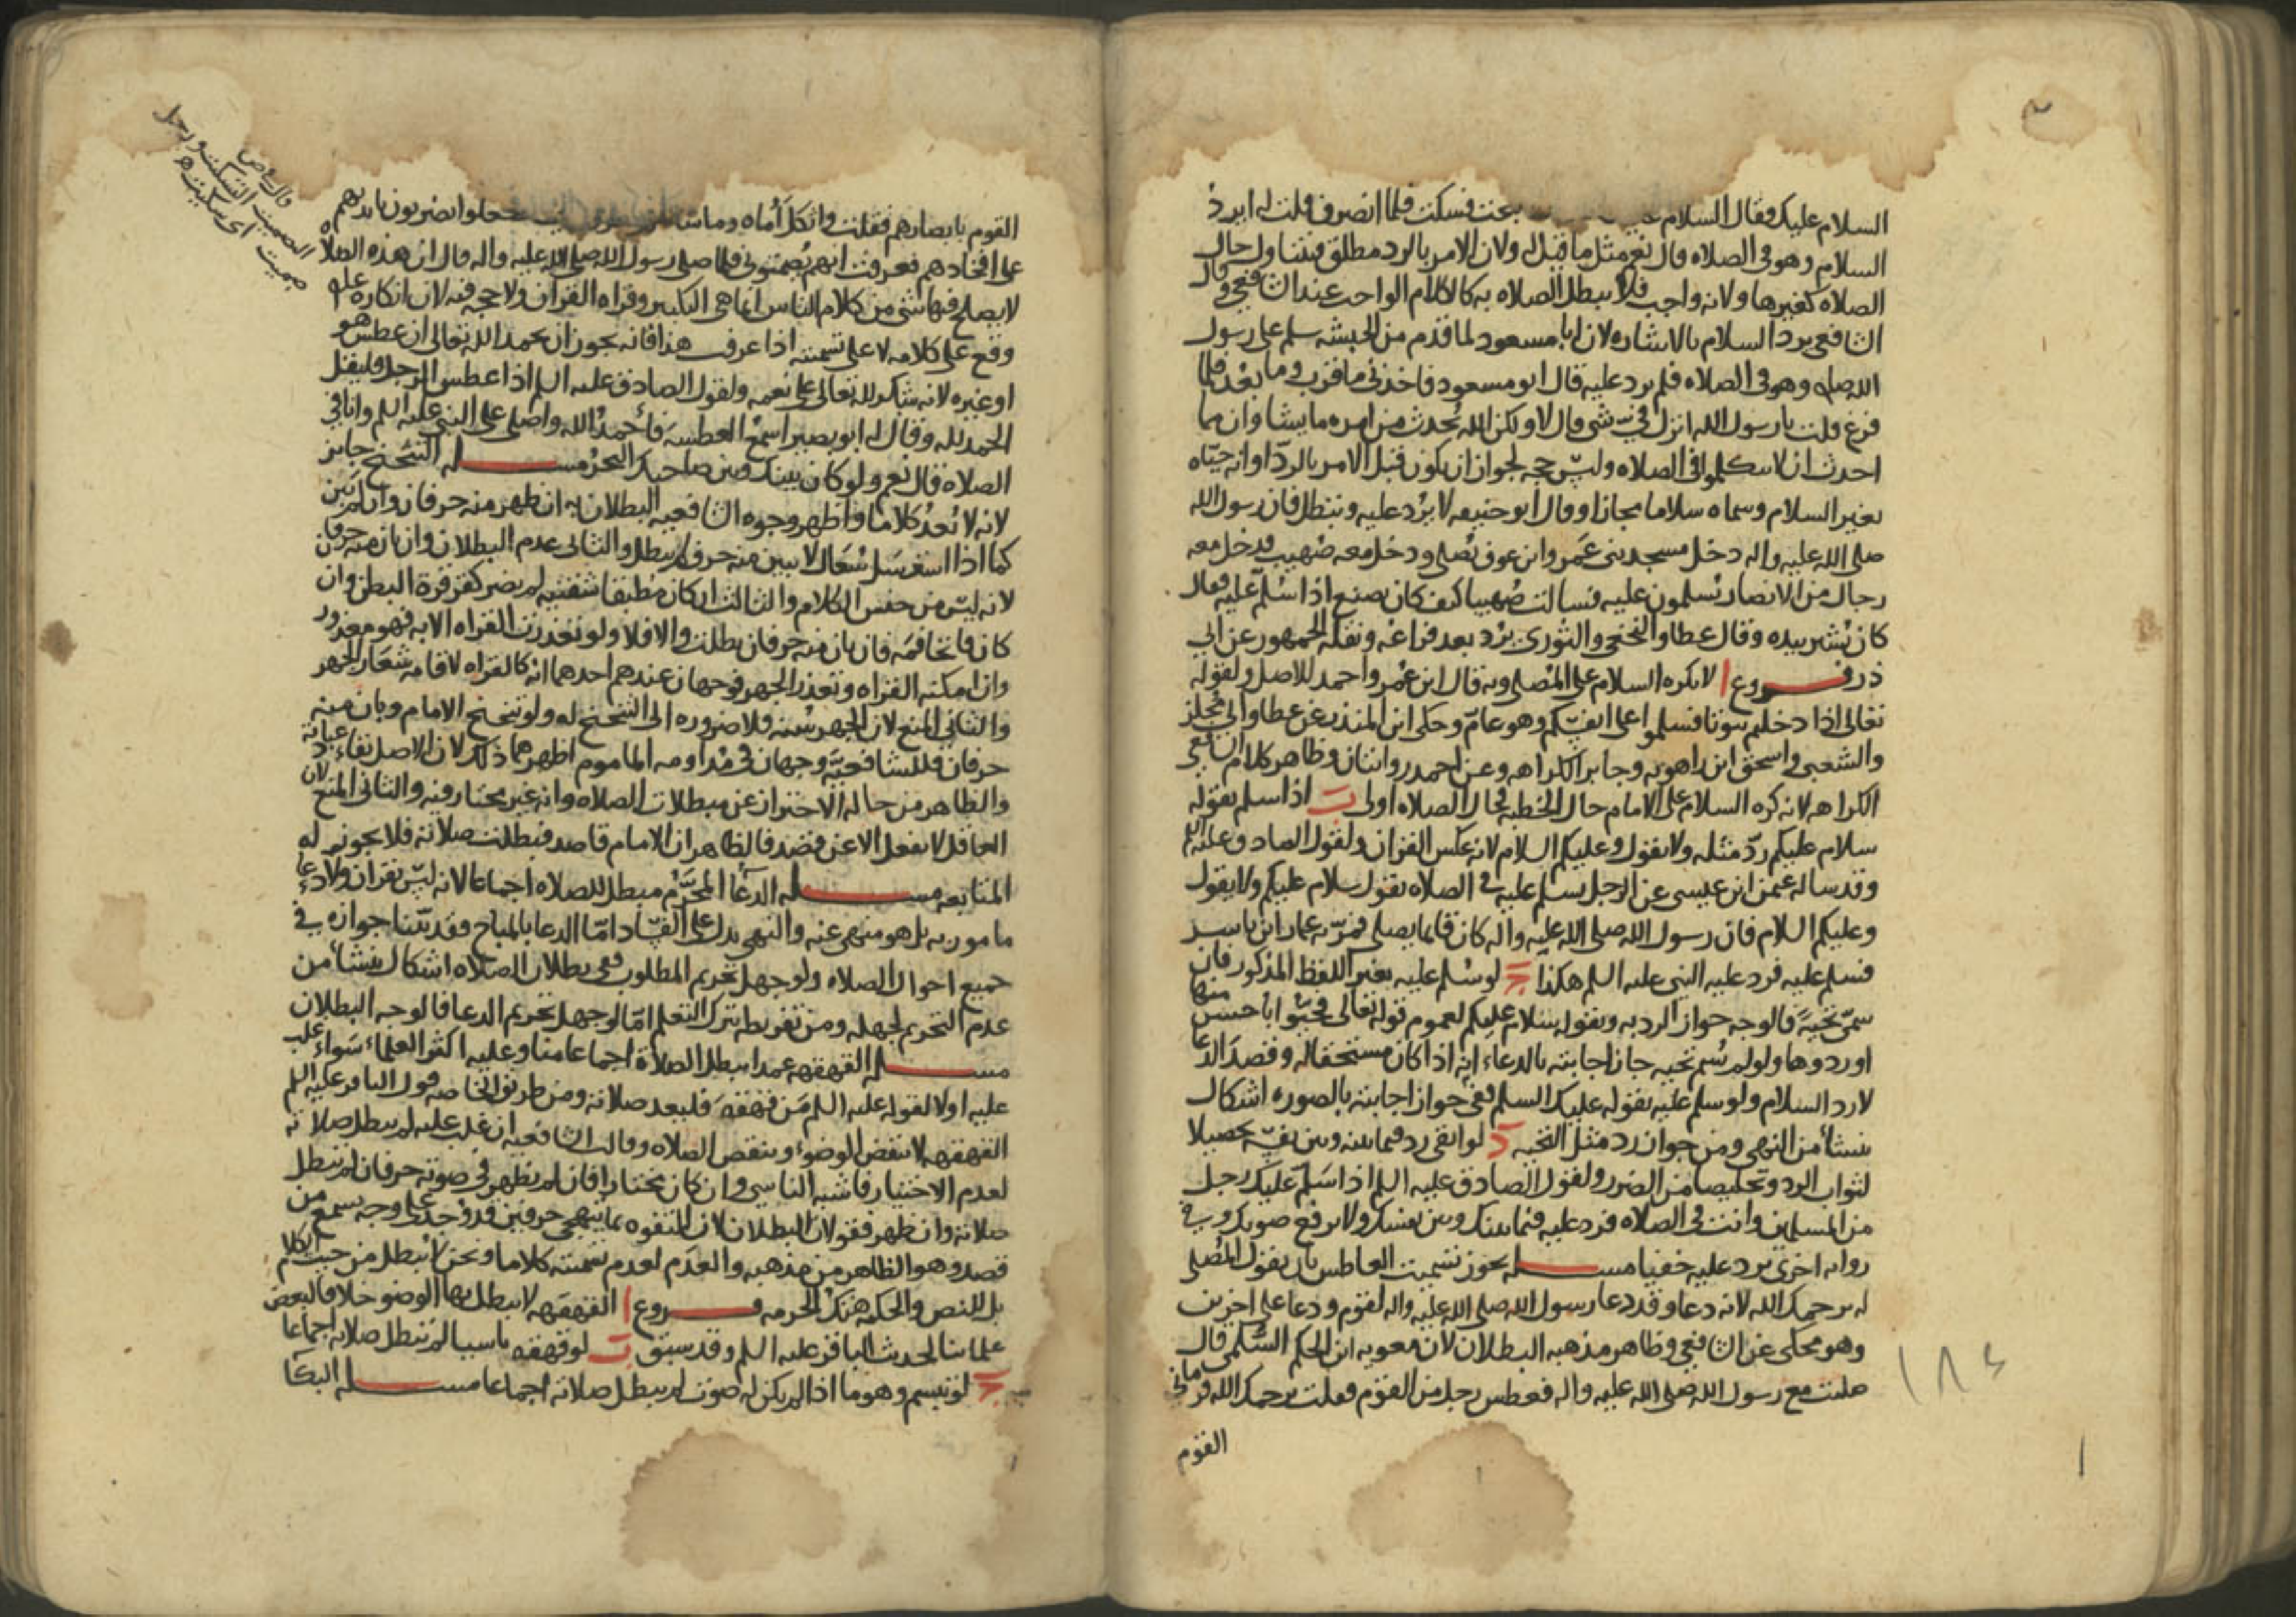 السلام عليك فقال السلام عليك فسكت فلما انصرف قلت له ايرد
السلام وهو في الصلاه قال نعم مثل ما قيل له ولان الامر بالرد مطلق فيتناول حال
الصلاه كغيرها ولانه واجب فلا تبطل الصلاه به كالكلام الواجب عند الشافعي وقال
الشافعي يرد السلام بالاشاره لان ابا مسعود لما قدم من الحبشه سلم على رسول
الله صله وهو في الصلاه فلم يرد عليه قال ابو مسعود فاخذني ما قرب وما بعد فلما
فرغ قلت يا رسول الله انزل في شي قال لا ولكن الله يحدث من امره ما يشا وان مما
احدث ان لا تتكلموا في الصلاه وليس حجه لجواز ان يكون قبل الامر بالرد او انه حياه
بغير السلام وسماه سلاما مجازا وقال ابو حنيفه لا يرد عليه وتبطل فان رسول الله
صلى الله عليه واله دخل مسجد بني عمرو ابن عوف يصلي ودخل معه صهيب فدخل معه
رجال من الانصار يسلمون عليه فسالت صهيبا كيف كان يصنع اذا سلم عليه فقال
كان يشير بيده وقال عطا والنخعي والثوري يرد بعد فراغه ونقله الجمهور عن ابي
ذر فروع ا لا يكره السلام على المصلي وبه قال ابن عمر واحمد للاصل ولقوله
تعالى اذا دخلتم بيوتا فسلموا على انفسكم وهو عام وحكى ابن المنذر عن عطا وابي مجلز
والشعبي واسحق ابن راهويه وجابر الكراهه وعن احمد روايتان وظاهر كلام الشافعي
الكراهه لانه كره السلام على الامام حال الخطبه فحال الصلاه اولى ب اذا سلم بقوله
سلام عليكم رد مثله ولا يقول وعليكم السلام لانه عكس القران ولقول الصادق عليه السلم
وقد ساله عثمن ابن عيسى عن الرجل يسلم عليه في الصلاه يقول سلام عليكم ولا يقول
وعليكم السلام فان رسول الله صلى الله عليه واله كان قايما يصلي فمر به عمار ابن ياسر
فسلم عليه فرد عليه النبي عليه السلم هكذا ج لو سلم عليه بغير اللفظ المذكور فان
سمي تحية فالوجه جواز الرد به وبقوله سلام عليكم لعموم قوله تعالى فحيوا باحسن منها
او ردوها ولو لم يسم تحيه جاز اجابته بالدعاء له اذا كان مستحقا له وقصد الدعا
لا رد السلام ولو سلم عليه بقوله عليك السلم ففي جواز اجابته بالصوره اشكال
ينشأ من النهي ومن جواز رد مثل التحيه د لو اتقى رد فيما بينه وبين نفسه تحصيلا
لثواب الرد وتخليصا من الضرر ولقول الصادق عليه السلم اذا سلم عليك رجل
من المسلمين وانت في الصلاه فرد عليه فيما بينك وبين نفسك ولا ترفع صوتك وفي
روايه اخرى يرد عليه خفيا مسئله يجوز تسميت العاطس بان يقول المصلي
له يرحمك الله لانه دعا وقد دعا رسول الله صلى الله عليه واله لقوم ودعا على اخرين
وهو محكي عن الشافعي وظاهر مذهبه البطلان لان معويه ابن الحكم السلمي قال
صليت مع رسول الله صلى الله عليه واله فعطس رجل من القوم فقلت يرحمك الله فرماني
القوم
١٨٤
القوم بابصارهم فقلت واثكل اماه وما فجعلوا يضربون بايديهم
على افخاذهم فعرفت انهم يصمتوني فلما صلى رسول الله صلى الله عليه واله قال ان هذه الصلاه
لا يصلح فيها شي من كلام الناس انما هي التكبير وقراه القران ولا حجه فيه لان انكاره عليه
وقع على كلامه لا على تسميته اذا عرفت هذا فانه يجوز ان يحمد الله تعالى ان عطس هو
او غيره لانه شكر لله تعالى على نعمه ولقول الصادق عليه السلم اذا عطس الرجل فليقل
الحمد لله وقال له ابو بصير اسمع العطسه فاحمد الله واصلي على النبي عليه السلم وانا في
الصلاه قال نعم ولو كان بينك وبين صاحبك البحر مسئله التنحنح جايز
لانه لا يعد كلاما واظهر وجوه الشافعيه البطلان به ان ظهر منه حرفان وان لم يبن
كما اذا استرسل سعال لا يبين منه حرف لم يبطل والثاني عدم البطلان وان بان منه حرفان
لانه ليس من جنس الكلام والثالث ان كان مطبقا شفتيه لم يضر كقرقرة البطن وان
كان فاتحا فمه فان بان منه حرفان بطلت والا فلا ولو تعذرت القراه الا به فهو معذور
وان امكنه القراه وتعذر الجهر فوجهان عندهم احدهما انه كالقراه لاقامه شعار الجهر
والثاني المنع لان الجهر سنه فلا ضروره الى التنحنح له ولو تنحنح الامام وبان منه
حرفان فللشافعيه وجهان في مداومه الماموم اظهرهما ذلك لان الاصل بقاء عبادته
والظاهر من حاله الاحتراز عن مبطلات الصلاه وانه غير مختار فيه والثاني المنع لان
العاقل لا يفعل الا عن قصد فالظاهر ان الامام قاصد فبطلت صلاته فلا يجوز له
المتابعه مسئله الدعا المحرم مبطل للصلاه اجماعا لانه ليس بقران ولا دعاء
مامور به بل هو منهي عنه والنهي يدل على الفساد اما الدعا بالمباح فقد بينا جوازه في
جميع احوال الصلاه ولو جهل تحريم المطلوب ففي بطلان الصلاه اشكال ينشأ من
عدم التحريم لجهله ومن تفريطه بترك التعلم اما لو جهل تحريم الدعا فالوجه البطلان
مسئله القهقهه عمدا تبطل الصلاة اجماعا منا وعليه اكثر العلماء سواء غلب
عليه او لا لقوله عليه السلم من قهقه فليعد صلاته ومن طريق الخاصه قول الباقر عليه السلم
القهقهه لا تنقض الوضوء وتنقض الصلاه وقالت الشافعيه ان غلب عليه لم تبطل صلاته
لعدم الاختيار فاشبه الناسي وان كان مختارا فان لم يظهر في صوته حرفان لم تبطل
صلاته وان ظهر فقولان البطلان لان التفوه بما يتهجى حرفين قد وجد على وجه يسمع من
قصد وهو الظاهر من مذهبه والعدم لعدم تسميته كلاما ونحن لا نبطل من حيث الكلام
بل للنص والحكمه هتك الحرمه فروع ا القهقهه لا تبطل بها الوضو خلافا لبعض
علماينا لحديث الباقر عليه السلم وقد سبق ب لو قهقه ناسيا لم تبطل صلاته اجماعا
ج لو تبسم وهو ما اذا لم يكن له صوت لم تبطل صلاته اجماعا مسئله البكا
قال في ص
الصميت السكيت ورجل
صميت اي سكيت